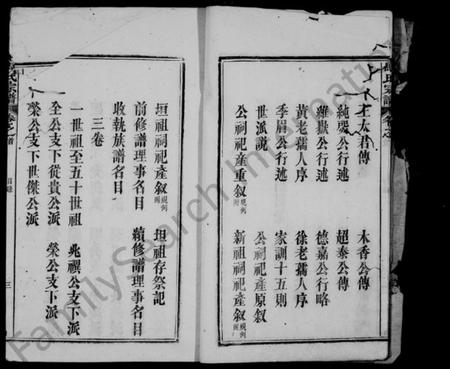 王太君傳　木香公傳
純嘏公行述　超泰公傳
公行述　德嘉公行略
黃老孺人序　徐老孺人序
季眉公行述　家訓十五則
世派說　公祠祀產原叙
公祠祀產重叙 規例附　新祖祠祀產叙 規例附
垣祖祠祀產叙 規例附　垣祖存祭記
前修譜理事名目　續修譜理事名目
收執族譜名目
三卷
一世祖至五十世祖
全公支下從貴公派　公支下派
榮公支下世傑公派　榮公支下派
氏宗譜
目錄
三
FamilySearch International